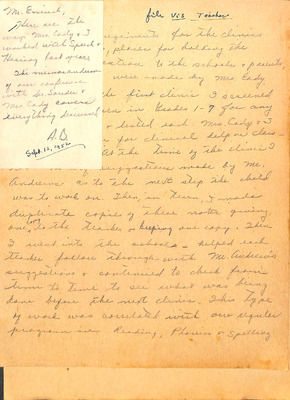 Mr. Emerick,
Here are the
ways Mrs. Cady & I
worked with Speech &
Hearing last year.
The memorandum
of our conference
with Dr. Souder &
Mrs. Cady covers
everything discussed.
A.D.
Sept. 16, 1952
file Vis Teacher
for the clinics
places for holding the
to the schools & parents,
were made by Mrs Cady
first clinic I screened
in Grades 1-7 for any
& tested each Mrs Cady & I
for clinical help or class
At the time of the clinic I
suggestions made by Mr.
Andrews as to the next step the child
was to work on. Then, in turn, I made
duplicate copies of these notes giving
one copy to the teacher & keeping one copy. Then
I went into the schools & helped each
teacher follow through with Mr. Andrews
suggestions & continued to check from
time to time to see what was being
done before the next clinic. This type
of work was correlated with our regular
program in Reading, Phonics & Spelling